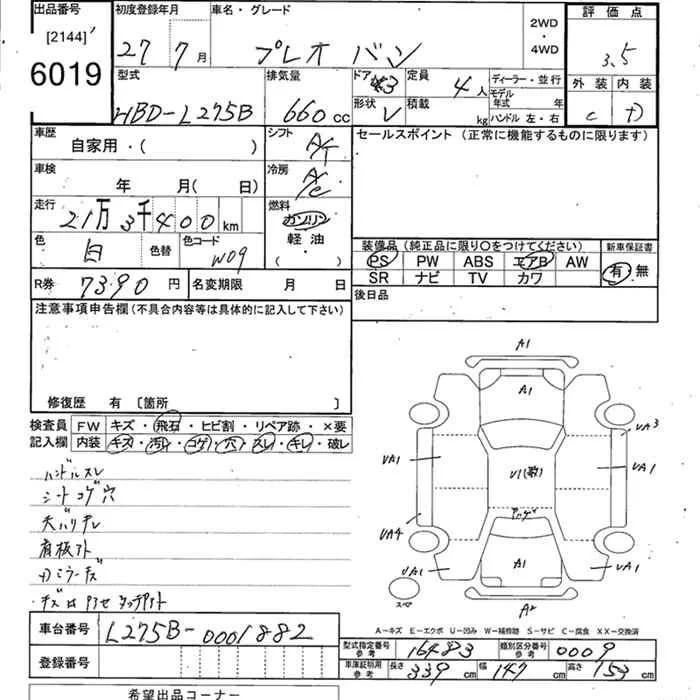 出品番号
[2144]
6019
初度登録年月
27 7月
車名・グレード
プレオ バン
2WD
・
4WD
評価点
3.5
型式
HBD-L275B
排気量
660cc
ドア
3
形状
V
定員
4人
積載
kg
ディーラー・並行
モデル年式 年
ハンドル 左・右
外装 内装
C D
車歴
自家用・( )
シフト
AT
セールスポイント (正常に機能するものに限ります)
車検
年 月( 日)
冷房
A/C
走行
21万3千400km
燃料
ガソリン
軽油
( )
色
白
色替
色コード
W09
装備品(純正品に限り○をつけてください)
PS PW ABS エアB AW
SR ナビ TV カワ
新車保証書
有・無
R券
7390円
名変期限 月 日
後日品
注意事項申告欄(不具合内容等は具体的に記入して下さい)
修復歴 有 〔箇所 〕
検査員記入欄
FW キズ・飛石・ヒビ割・リペア跡・×要
内装 キズ・汚れ・コゲ・穴・スレ・キレ・破レ
ハンドルスレ
シートコゲ穴
天バリキレ
看板アト
A1
A1
UA3
UA1
UA1
U1(数)
UA4
UA1
A1
UA1
A2
スペア
A-キズ E-エクボ U-凹み W-補修跡 S-サビ C-腐食 XX-交換済
車台番号
L275B-0001882
登録番号
型式指定番号参考
16483
類別区分番号参考
0009
車庫証明用参考
長さ 339cm 幅 147cm 高さ 153cm
希望出品コーナー